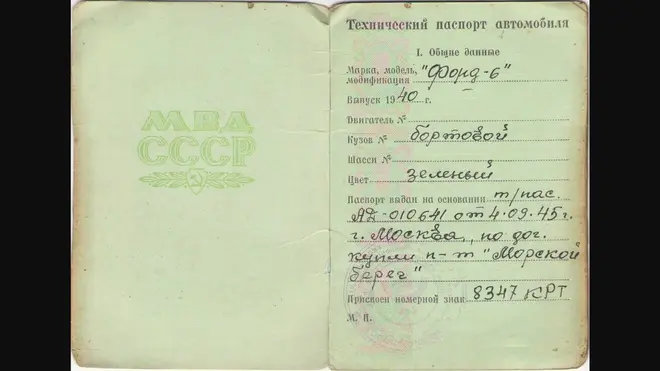 МВД
СССР
Технический паспорт автомобиля
I. Общие данные
Марка, модель, "Форд-6"
модификация
Выпуск 1940 г.
Двигатель №
Кузов № бортовой
Шасси №
Цвет зеленый
Паспорт выдан на основании т/пас.
АД-010641 от 4.09.45г.
г. Москва, по дог.
купли п-т "Морской
берег"
Присвоен номерной знак 8347 КРТ
М. П.